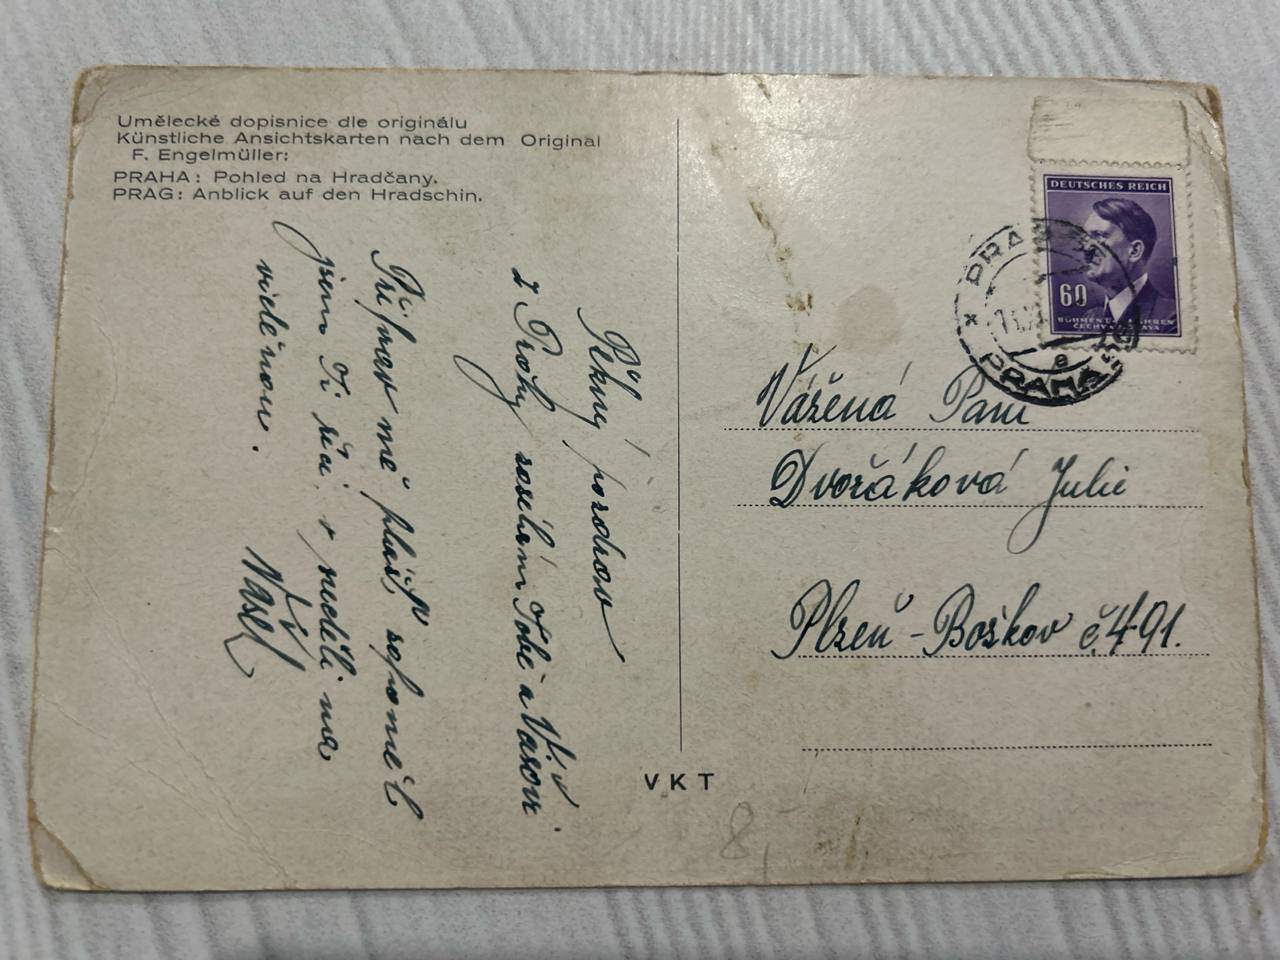 Umělecké dopisnice dle originálu
Künstliche Ansichtskarten nach dem Original
F. Engelmüller:
PRAHA: Pohled na Hradčany.
PRAG: Anblick auf den Hradschin.
Pěkný pozdrav
z Prahy zasílám Tobě a Vašovi.
Připrav mě plášť, zapomněl
jsem Ti říci v neděli na
viděnou.
Váš
DEUTSCHES REICH
60
BÖHMEN U. MÄHREN
ČECHY A MORAVA
PRAHA
Vážená Paní
Dvořáková Julie
Plzeň - Božkov č. 491.
VKT
8,-